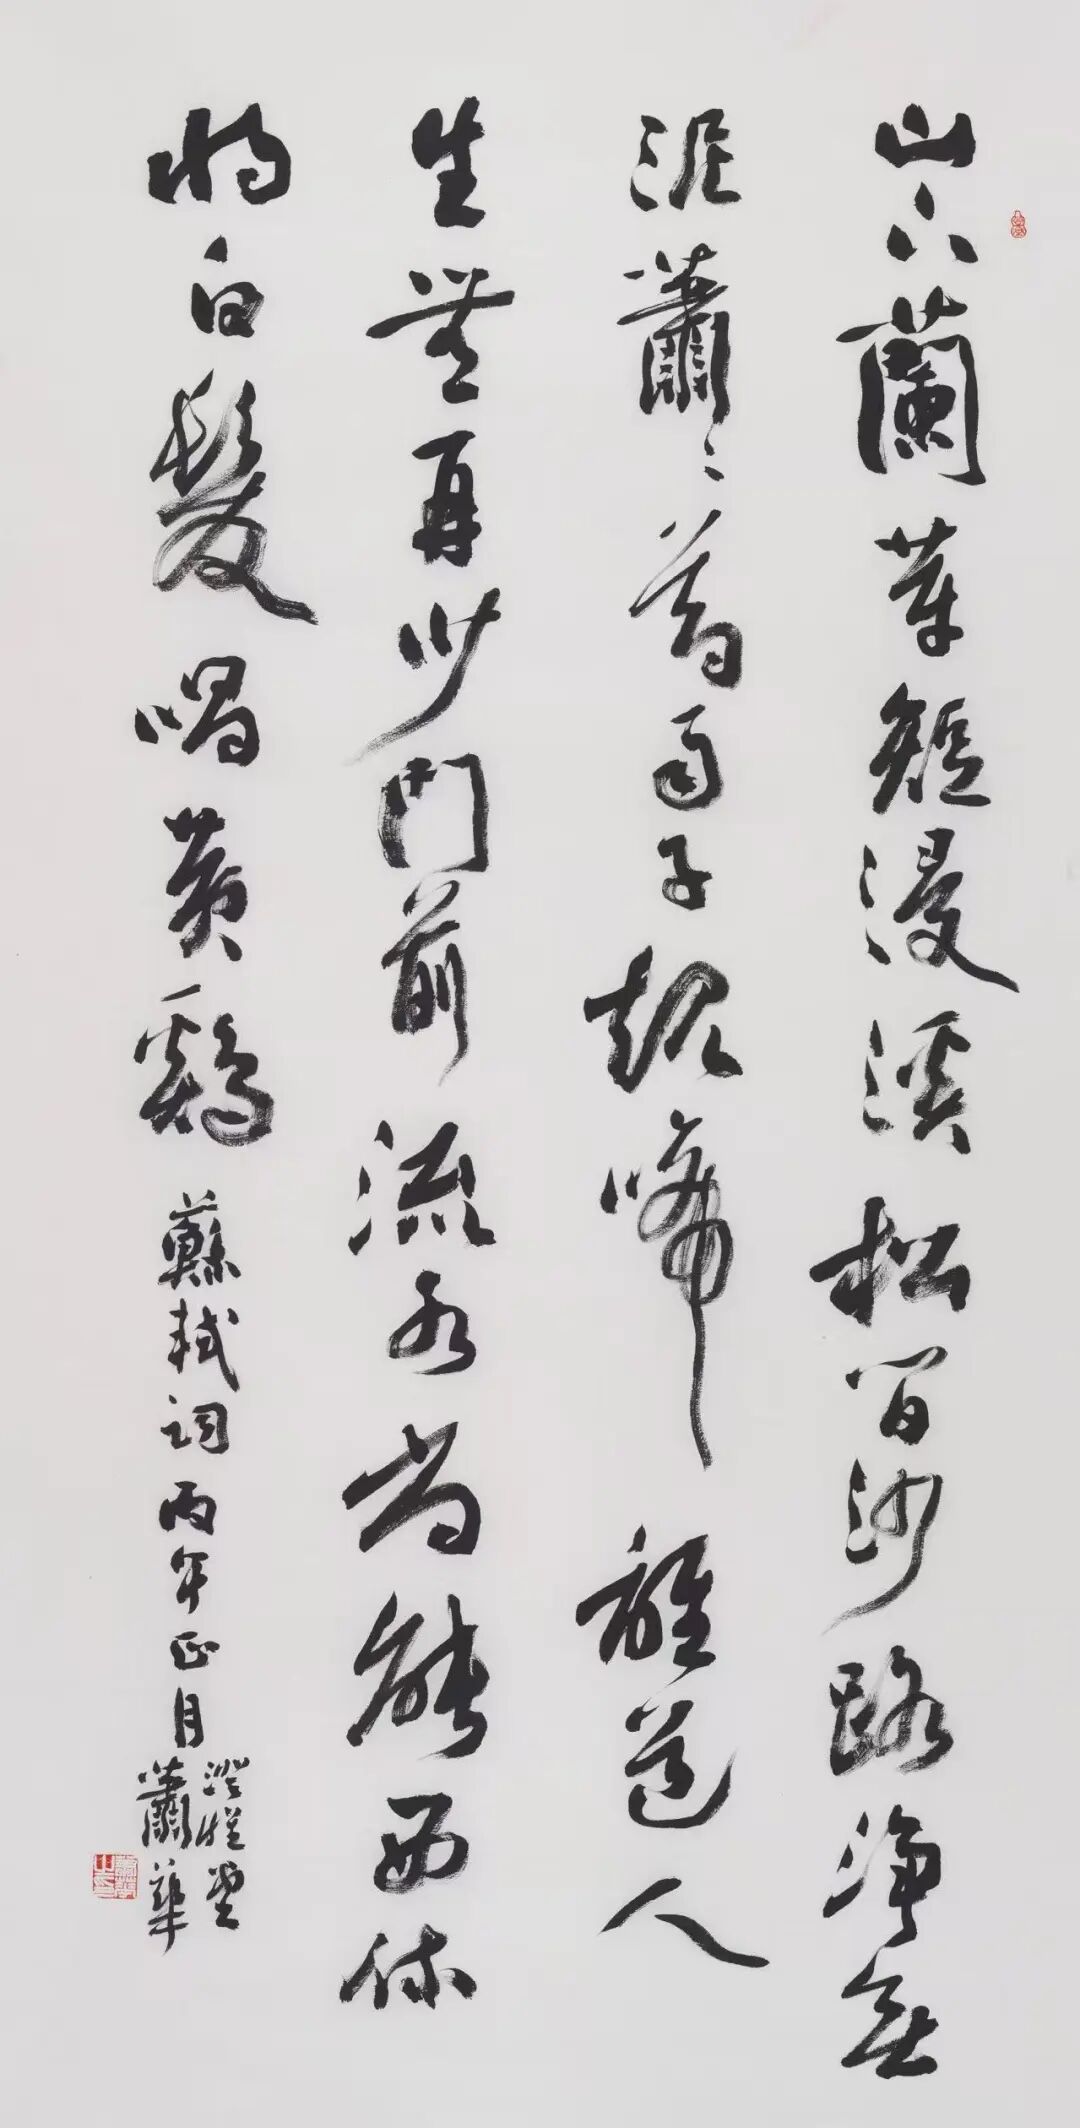 山下蘭芽短浸溪松間沙路淨無
泥蕭〻暮雨子規啼誰道人
生無再少門前流水尚能西休
將白髮唱黃雞 蘇軾詞丙午正月
澄懷堂
蕭華